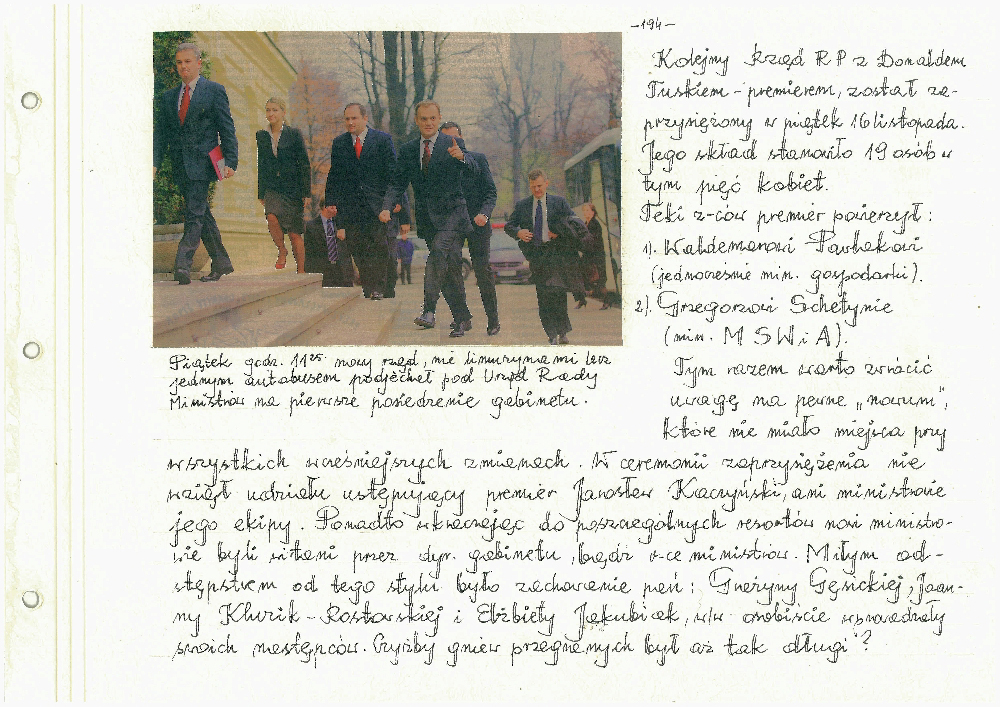 -194-
Kolejny Rząd RP z Donaldem
Tuskiem - premierem, został za-
przysiężony w piątek 16 listopada.
Jego skład stanowiło 19 osób w
tym pięć kobiet.
Teki z-ców premier powierzył:
1). Waldemarowi Pawlakowi
(jednocześnie min. gospodarki).
2). Grzegorzowi Schetynie
(min. MSWiA).
Tym razem warto zwrócić
uwagę na pewne „novum",
które nie miało miejsca przy
Piątek godz. 11²⁵ nowy rząd, nie limuzynami lecz
jednym autobusem podjechał pod Urząd Rady
Ministrów na pierwsze posiedzenie gabinetu.
wszystkich wcześniejszych zmianach. W ceremonii zaprzysiężenia nie
wziął udziału ustępujący premier Jarosław Kaczyński, ani ministrowie
jego ekipy. Ponadto wkraczając do poszczególnych resortów nowi ministro-
wie byli witani przez dyr. gabinetu, bądź v-ce ministrów. Miłym od-
stępstwem od tego stylu było zachowanie pań: Grażyny Gęsickiej, Joan-
ny Kluzik-Rostowskiej i Elżbiety Jakubiak, w/w osobiście wprowadzały
swoich następców. Czyżby gniew przegranych był aż tak długi?